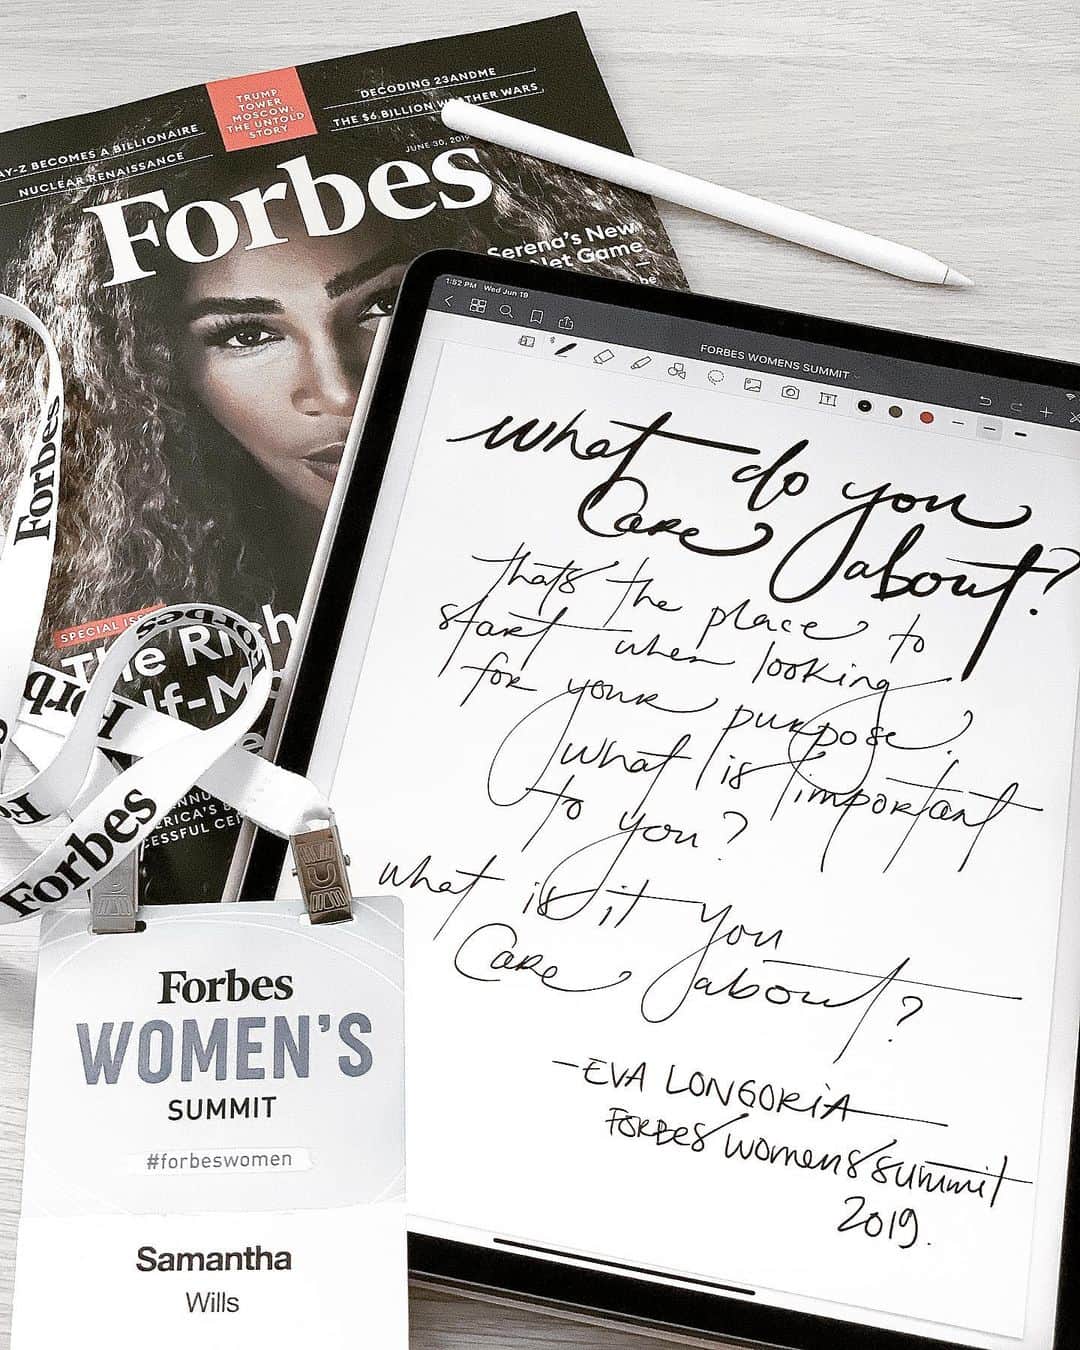 TRUMP
TOWER
MOSCOW:
THE UNTOLD
STORY
DECODING 23ANDME
THE $6 BILLION WEATHER WARS
AY-Z BECOMES A BILLIONAIRE
NUCLEAR RENAISSANCE
JUNE 30, 2019
Forbes
Serena's New
Net Game
SPECIAL ISS
The Rich
lf-M
1:52 PM Wed Jun 19
FORBES WOMENS SUMMIT
What do you
Care about?
thats the place to
start when looking
for your purpose.
What is important
to you?
what is it you
Care about?
- EVA LONGORIA
FORBES womens summit
2019.
Forbes
Forbes
Forbes
Forbes
WOMEN'S
SUMMIT
#forbeswomen
Samantha
Wills